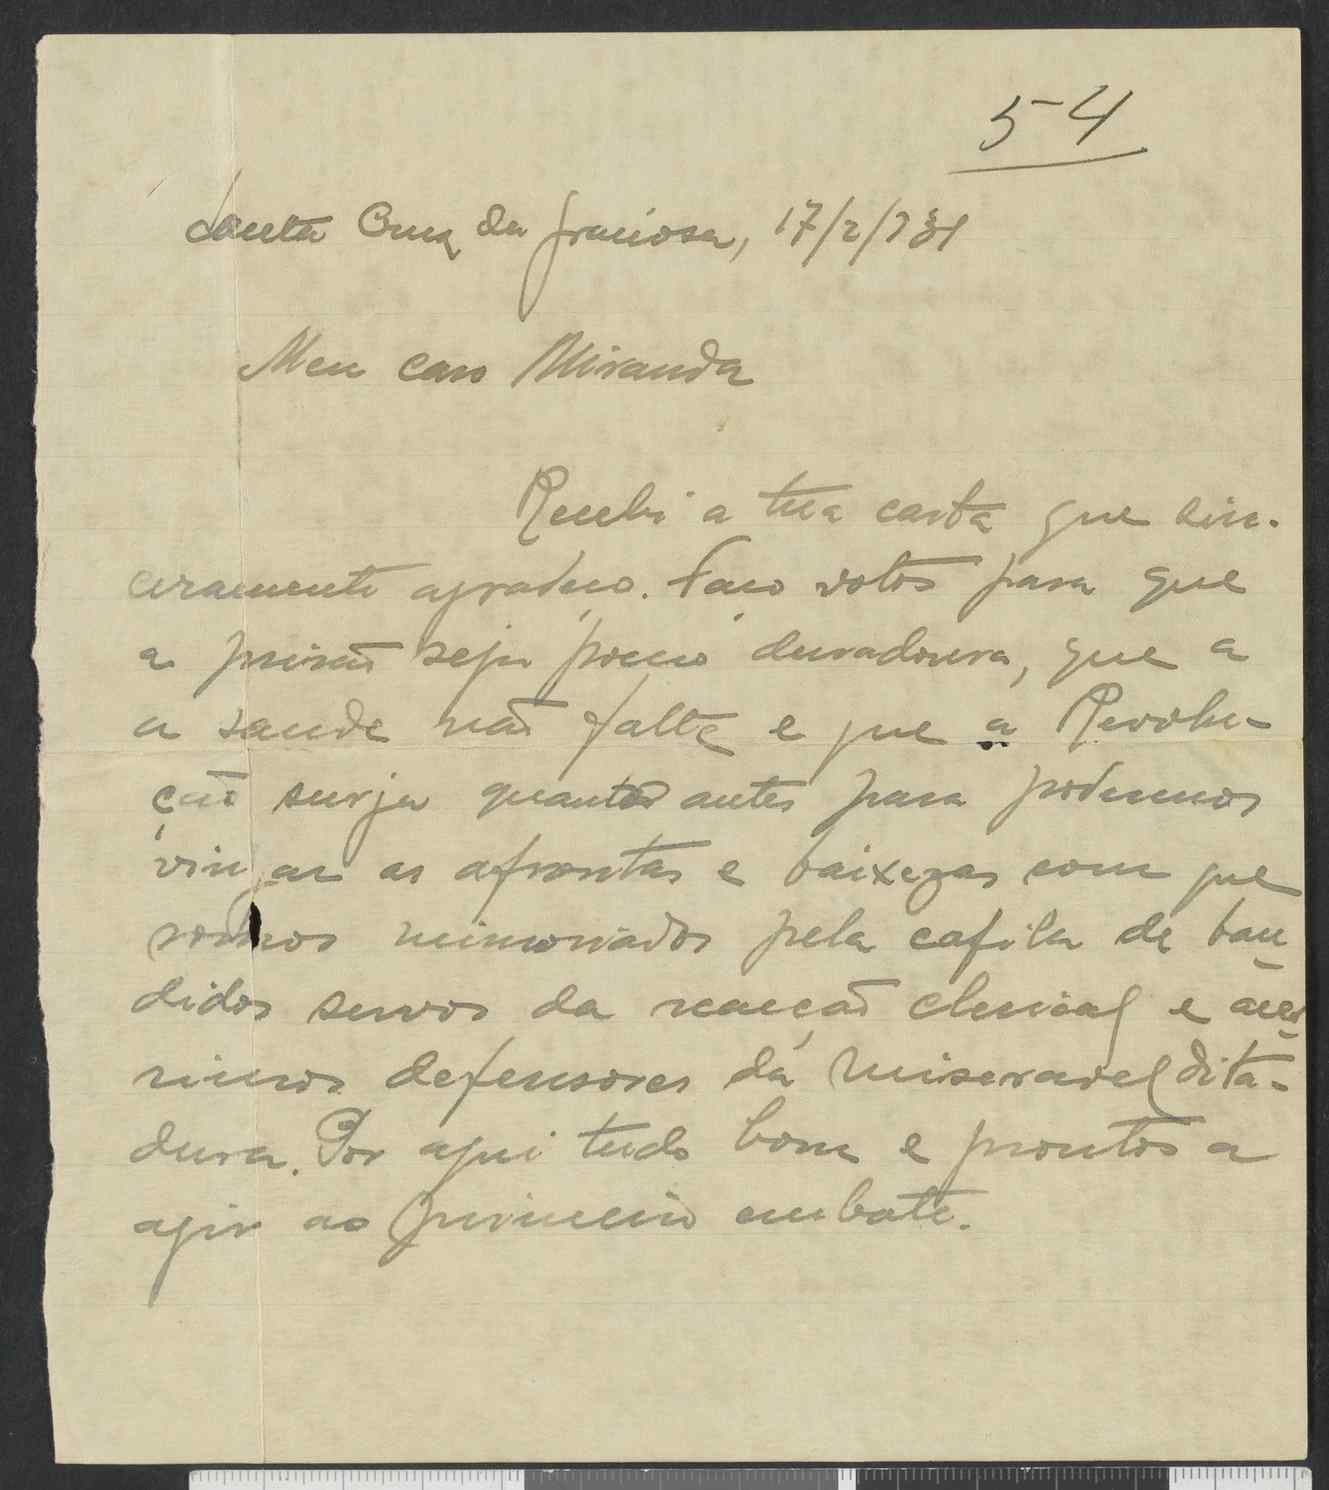 54
Santa Cruz da Graciosa, 17/2/931
Meu caro Miranda
Recebi a tua carta que sin-
ceramente agradeço. Faço votos para que
a prisão seja pouco duradoura, que a
a saude não falte e que a Revolu-
ção surja quanto antes para podermos
vingar as afrontas e baixezas com que
somos mimoseados pela cafila de ban
didos servos da reacção clerical e acer
rimos defensores da miseravel dita-
dura. Por aqui tudo bom e prontos a
agir ao primeiro embate.